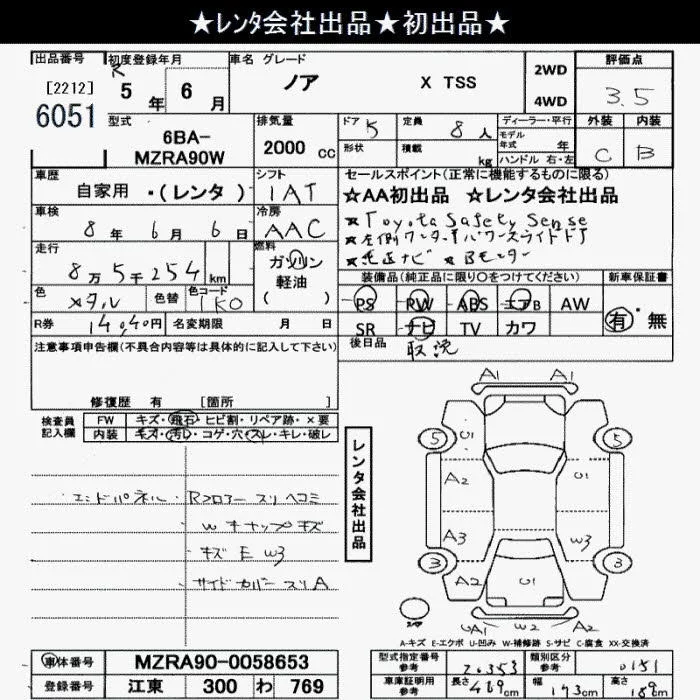 ★レンタ会社出品★初出品★
出品番号 初度登録年月 車名 グレード 評価点
[2212] R 5年 6月 ノア X TSS 2WD 3.5
6051 4WD
型式 排気量 ドア 5 定員 8人 ディーラー・平行 外装 内装
6BA- 形状 積載 kg モデル年式 年 C B
MZRA90W 2000cc ハンドル 右・左
車歴 シフト セールスポイント(正常に機能するものに限る)
自家用 ・(レンタ ) IAT ☆AA初出品 ☆レンタ会社出品
車検 冷房 ★Toyota Safety Sense
8年 6月 6日 AAC ★左側ワンタッチパワースライドドア
走行 燃料 ★純正ナビ ★Bモニター
8万5千254km ガソリン
軽油
( )
装備品(純正品に限り○をつけてください) 新車保証書
色 メタル 色替 色コード 1K0 PS PW ABS エアB AW 有・無
R券 14,040円 名変期限 月 日 SR ナビ TV カワ
注意事項申告欄(不具合内容等は具体的に記入して下さい) 後日品 取説
修復歴 有 [箇所 ]
検査員記入欄 FW キズ・飛石・ヒビ割・リペア跡・×要
内装 キズ・汚レ・コゲ・穴・スレ・キレ・破レ
エンドパネル・Rフロアースリヘコミ
Wキャップキズ
キズ E W3
サイドカバースリA
レンタ会社出品
A1 A1
5 U1 5
A2 U1
A3 W3
3 A2 U1 3
UA1 W2 A2
スペア
A-キズ E-エクボ U-凹み W-補修跡 S-サビ C-腐食 XX-交換済
車体番号 MZRA90-0058653 型式指定番号 参考 20353 類別区分 参考 0151
登録番号 江東 300 わ 769 車庫証明用 参考 長さ 469cm 幅 173cm 高さ 189cm